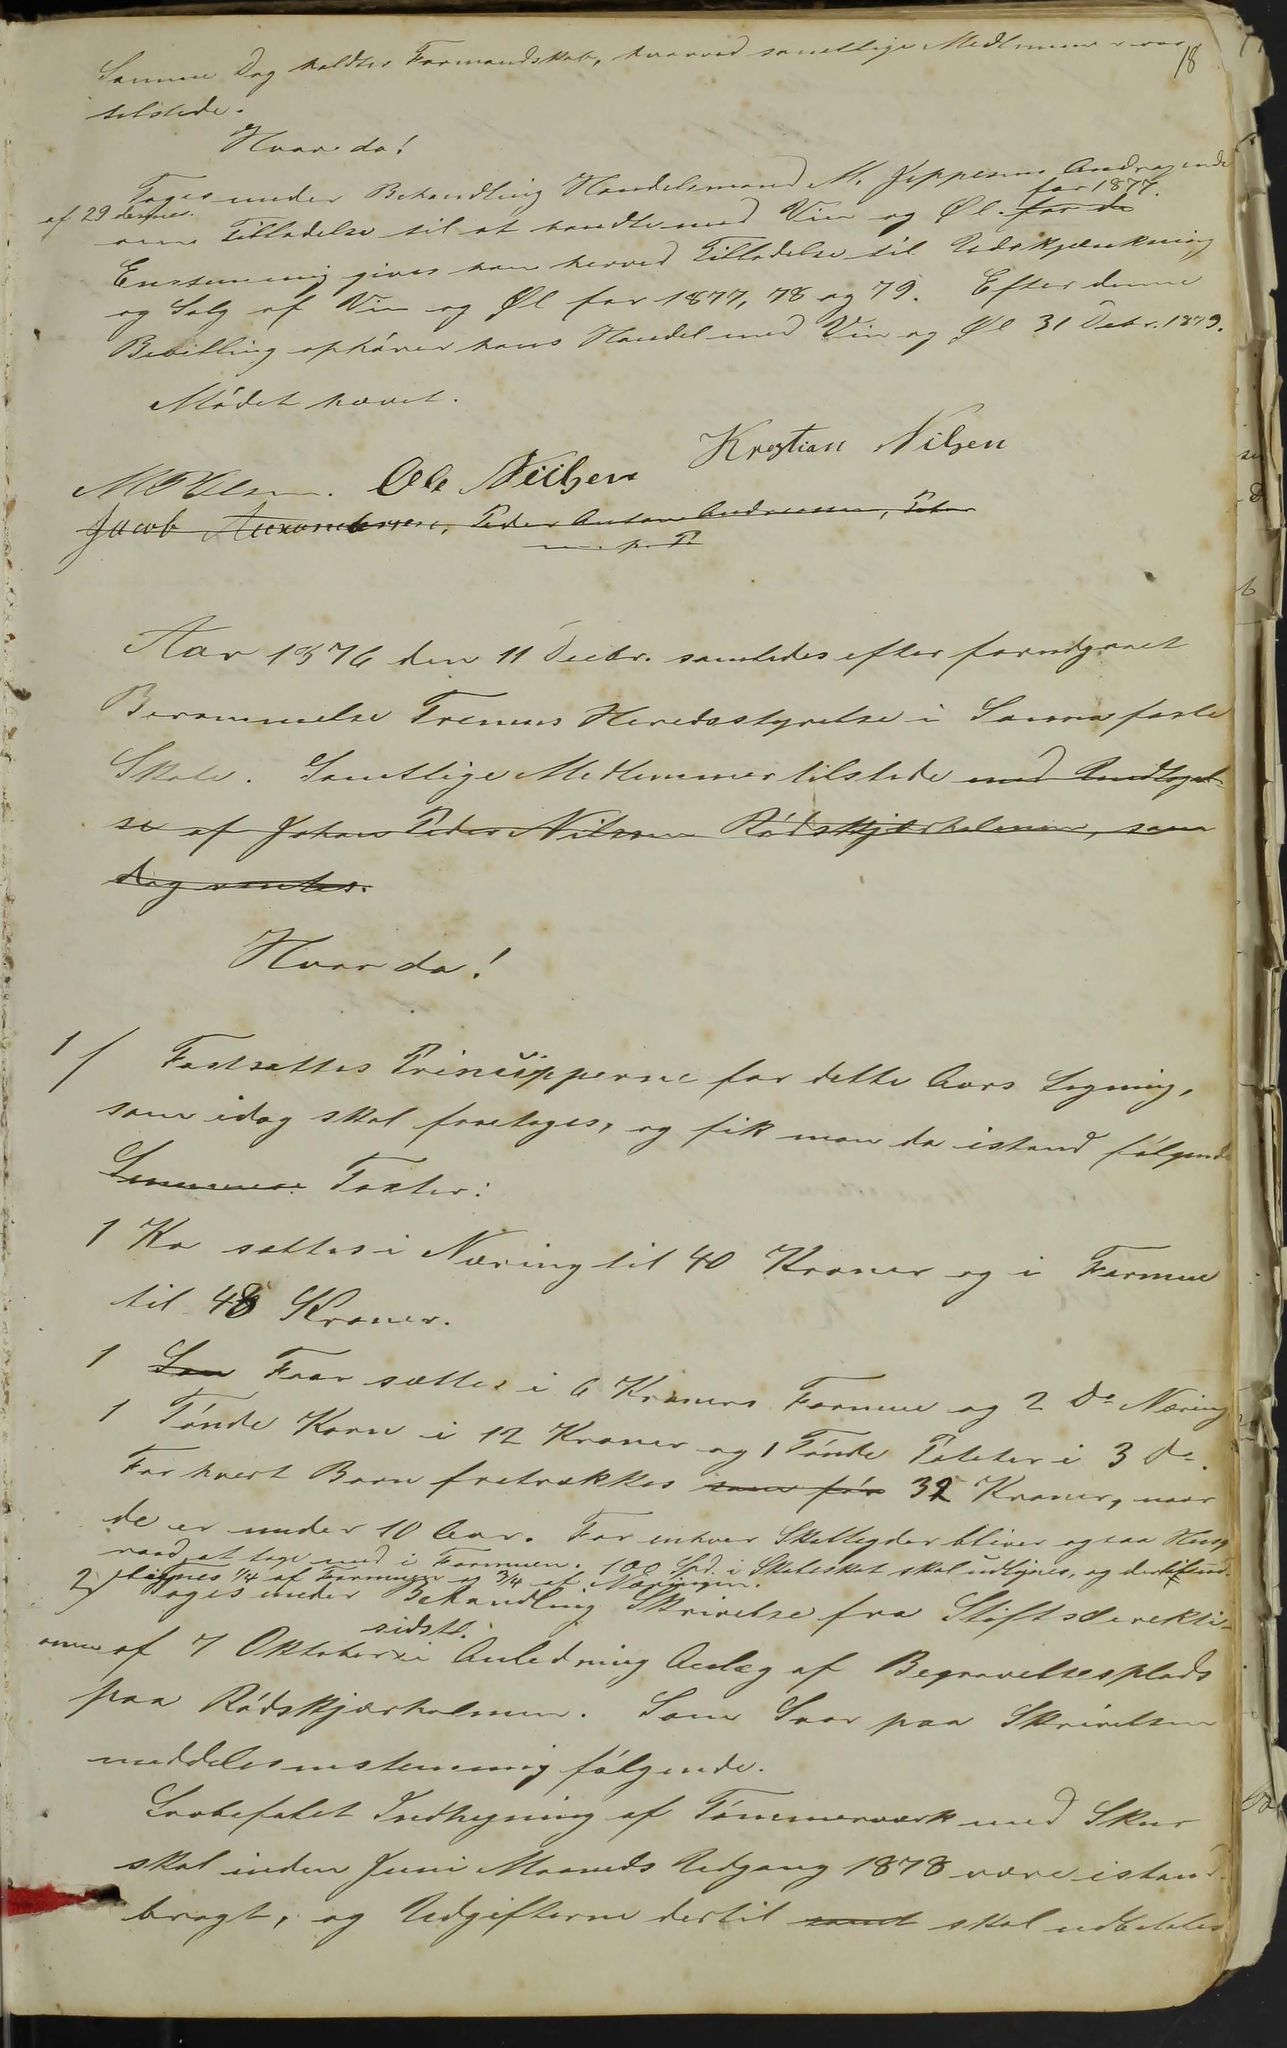 18
Samme Dag holdtes Formandskab, hvorved samtlige Medlemmer var
tilstede.
Hvor da!
Toges under Behandling Handelsmand M. Jeppesens Andragende
af 29 dennes. for 1877.
om Tilladelse til at handle med Vin og Øl for de
Enstemmig gives ham herved Tilladelse til Udskjænkning
og Salg af Vin og Øl for 1877, 78 og 79. Efter denne
Bevilling ophører hans Handel med Vin og Øl 31 Debr. 1879.
Mødet hævet.
Krestian Nilsen
Ole Neilsen
Jacob Peder Anton Andreassen, Peter
m. p. P.
Aar 1876 den 11 Decbr. samledes efter forudgaaet
Berammelse Tranens Heredsstyrelse i Sanna faste
Skole. Samtlige Medlemmer tilstede med Undtagel-
se af Johan Peder Nilsen Rødskjærholmen, som
dog ventes.
Hvor da!
1/ Fastsattes Principperne for dette Aars Ligning,
som idag skal foretages, og fik man da istand følgende
Taxter:
1 Ko sættes i Næring til 40 Kroner og i Formue
til 48 Kroner.
1 Faar sættes i 6 Kroners Formue og 2 Do Næring
1 Tønde Korn i 12 Kroner og 1 Tønde Poteter i 3 do.
For hvert Barn fratrækkes som før 32 Kroner, naar
de er under 10 Aar. For enhver Skatteyder bliver ogsaa Hus-
raad at tage med i Formuen. 100 Spd. i Skoleskat skal udlignes, og
lignes 1/4 af Formuen og 3/4 af Næringen.
2/ Toges under Behandling Skrivelse fra Stiftsdirekti-
sidstl.
onen af 7 Oktober i Anledning Anlæg af Begravelsesplads
paa Rødskjærholmen. Som Svar paa Skrivelsen
meddeles enstemmig følgende.
Lovbefalet Indhegning af Tømmerværk med Skur
skal inden Juni Maaneds Udgang 1878 være istand-
bragt, og Udgifterne dertil samt skal udbetales